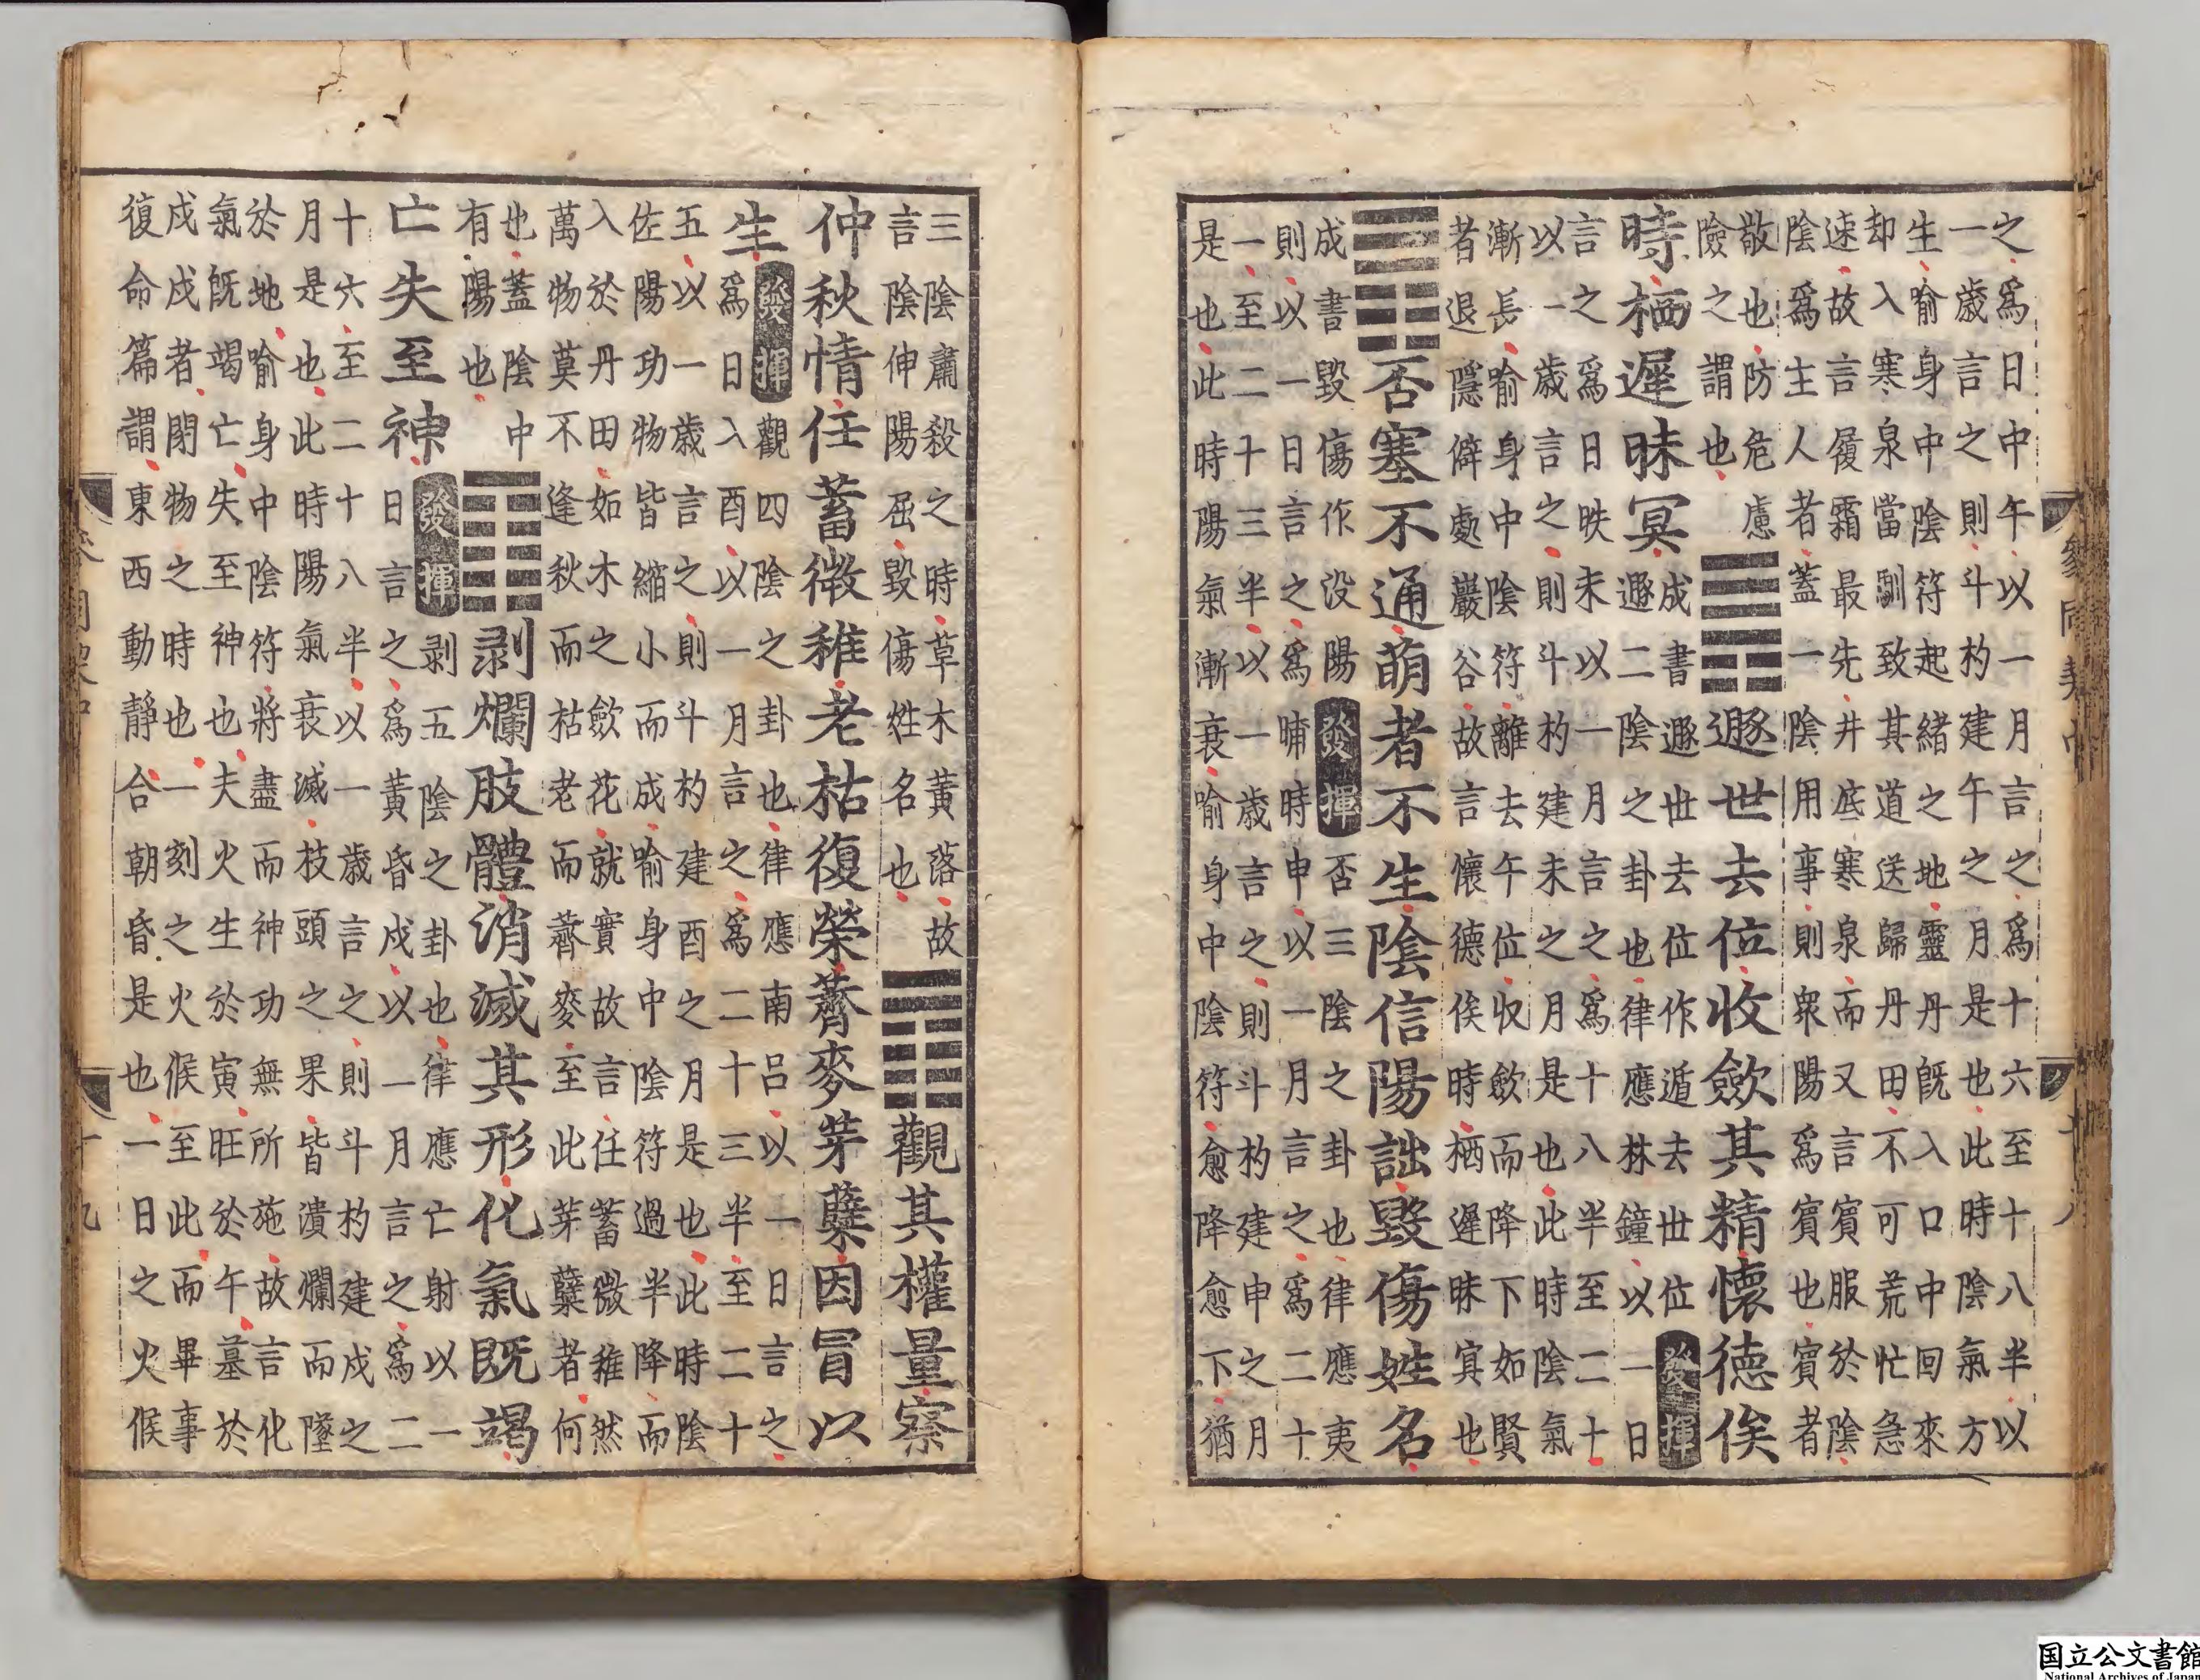 之爲日中午以一月言之爲十六至十八半以
一歲言之則斗杓建午之月是也此時陰氣方
生喻身中陰符起緒之地靈丹既入口中回來
却入寒泉當馴致其道送歸丹田不可荒忙急
速故言履霜最先井底寒泉而又言賓服於陰
陰爲生人者蓋一陰用事則衆陽爲賓也賓者
敬也防危慮
險之謂也
䷠遯世去位收斂其精懷德俟
時栖遲昧冥
成書遯世去位作遁去世位 發揮
遯二陰之卦也律應林鐘以一日
言之爲日昳未以一月言之爲十八半至二十
以一歲言之則斗杓建未之月是也此時陰氣
漸長喻身中陰符離去午位収歛而降下如賢
者退隱僻處巖谷故言懷德俟時栖遲昧冥也
䷋否塞不通萌者不生陰信陽詘毀傷姓名
成書毀傷作没陽 發揮 否三陰之卦也律應夷
則以一日言之爲晡時申以一月言之爲二十
一至二十三半以一歲言之則斗杓建申之月
是也此時陽氣漸衰喻身中陰符愈降愈下猶
參同契中
十八
三陰肅殺之時草木黄落故
言陰伸陽屈毀傷姓名也
䷓觀其權量察
仲秋情任蓄微稚老枯復榮薺麥芽蘖因冒以
生
發揮 觀四陰之卦也律應南呂以一日言之
爲日入酉以一月言之爲二十三半至二十
五以一歲言之則斗杓建酉之月是也此時陰
佐陽功物皆縮小而成喻身中陰符過半降而
入於丹田如木之歛花就實故言任蓄微稚然
萬物莫不逢秋而枯老而薺麥至此芽蘖者何
也蓋陰中
有陽也
䷖剥爛肢體消滅其形化氣既竭
亡失至神
發揮 剥五陰之卦也律應亡射以一
日言之爲黄昏戌以一月言之爲二
十六至二十八半以一歲言之則斗杓建戌之
月是也此時陽氣衰滅枝頭之果皆潰爛而墜
於地喻身中陰符將盡而神功無所施故言化
氣既竭亡失至神也夫火生於寅旺於午墓於
戌戌者閉物之時也一刻之火候至此而畢事
復命篇謂東西動靜合朝昏是也一日之火候
十九
国立公文書館
National Archives of Japan